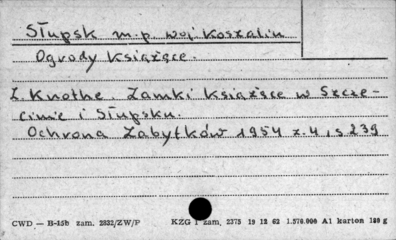 Słupsk m.p. woj Koszalin
Ogrody książęce.
Z. Knothe Zamki książęce w Szcze-
cinie i Słupsku.
Ochrona Zabytków 1954 z.4, s 239
CWD — B-15b zam. 2832/ZW/P KZG 1 zam. 2375 19 12 62 1.570.000 A1 karton 180 g